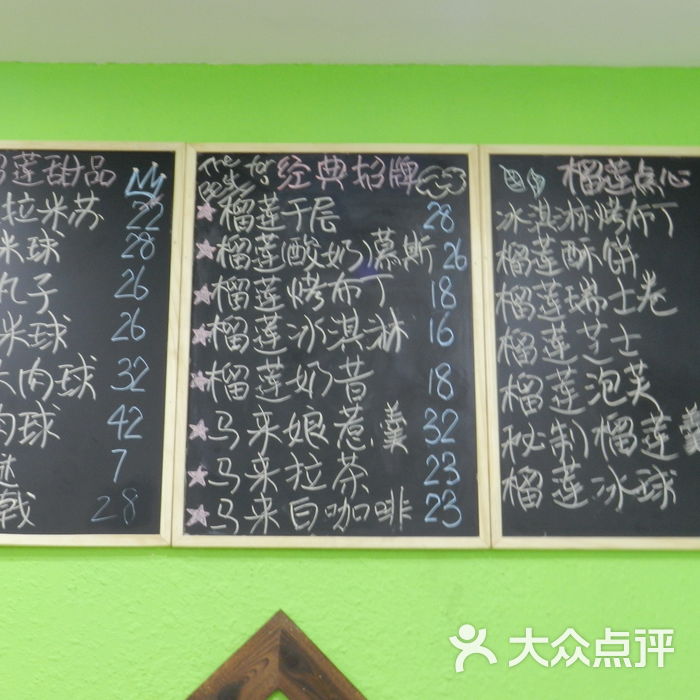 榴莲甜品
拉米苏 22
米球 28
丸子 26
米球 26
肉球 32
肉球 42
7
戟 28
经典招牌
榴莲千层 28
榴莲(酸奶)慕斯 26
榴莲烤布丁 18
榴莲冰淇淋 16
榴莲奶昔 18
马来娘惹羹 32
马来拉茶 23
马来白咖啡 23
榴莲点心
冰淇淋烤布丁
榴莲酥饼
榴莲瑞士卷
榴莲芝士
榴莲泡芙
秘制榴莲羹
榴莲冰球
大众点评